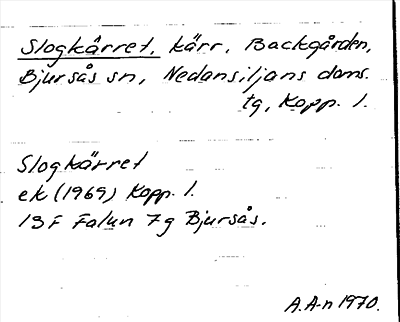 Slogkärret, kärr, Backgården,
Bjursås sn, Nedansiljans doms.
tg, Kopp. l.
Slogkärret
ek (1969) Kopp. l.
13F Falun 7g Bjursås.
A.A-n 1970.